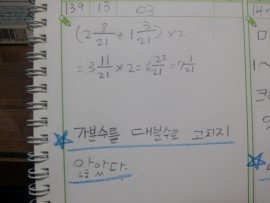 139 13 03
(2 8/21 + 1 3/21) × 2
= 3 11/21 × 2 = 6 22/21 = 7 1/21
가분수를 대분수로 고치지
않았다.